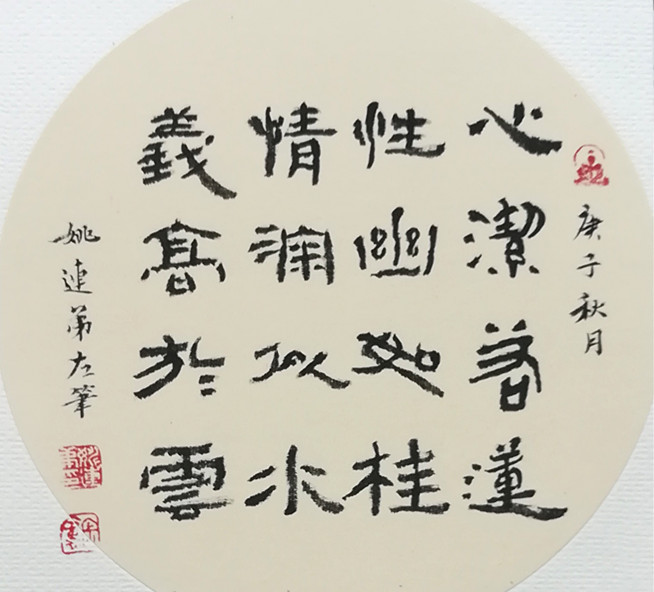 庚子秋月
心潔若蓮
性幽如桂
情似水
義高於雲
姚連第左筆